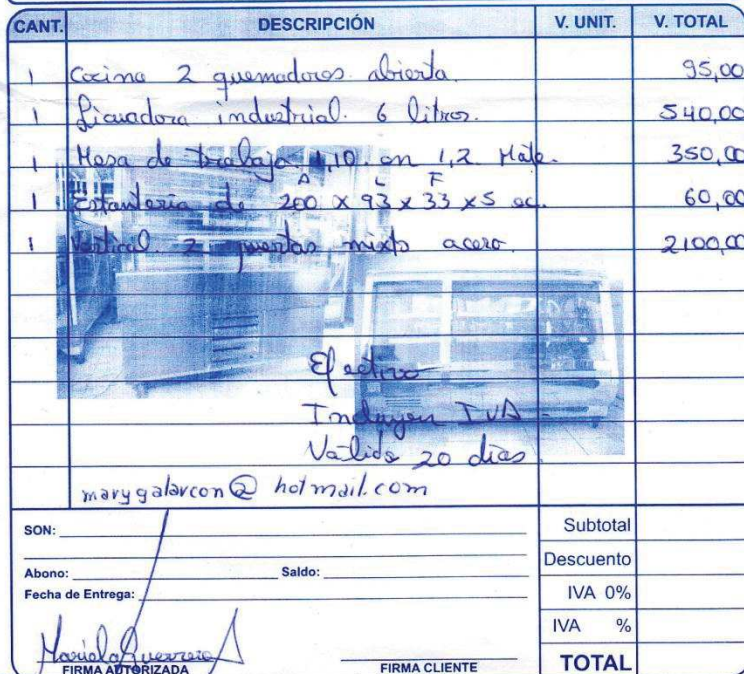 CANT. DESCRIPCIÓN V. UNIT. V. TOTAL
1 Cocina 2 quemadores abierta. 95,00
1 Licuadora industrial. 6 litros. 540,00
1 Mesa de trabajo. 1,10. en 1,2. Mate. 350,00
A L F
1 Estantería de 200 x 93 x 33 x 5 60,00
1 Vertical. 2 puertas mixto acero. 2100,00
Efectivo
Incluyen IVA -
Válido 20 días
marygalarcon@hotmail.com
SON: Subtotal
Descuento
Abono: Saldo:
Fecha de Entrega: IVA 0%
IVA %
Mariela Guerrero
FIRMA AUTORIZADA FIRMA CLIENTE TOTAL